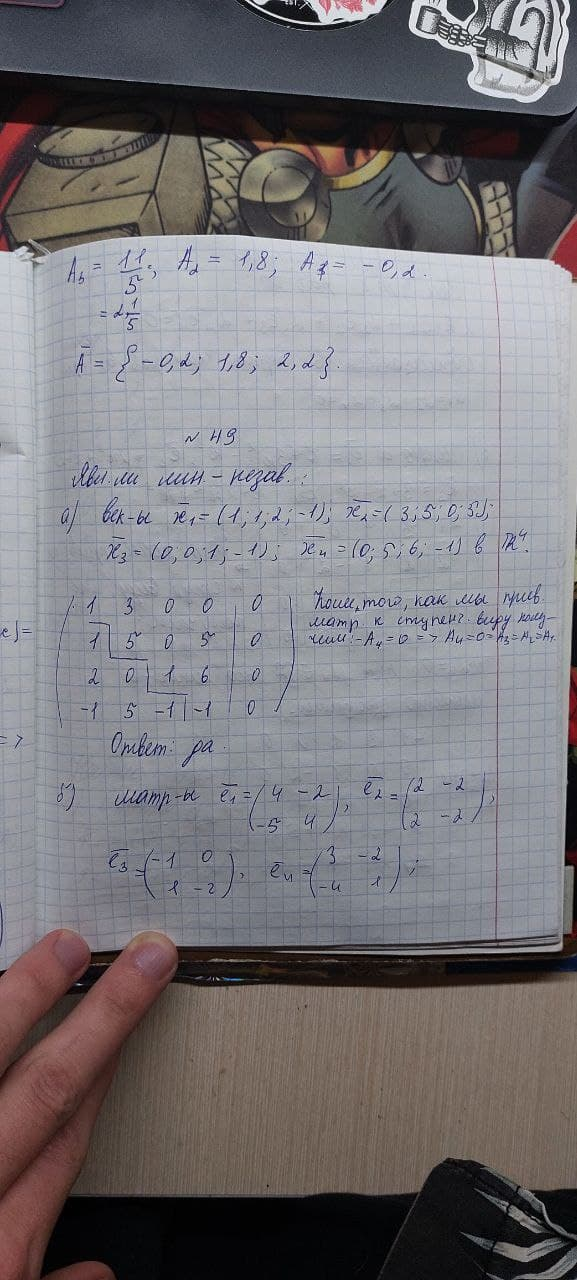 A₃ = 11/5; A₂ = 1,8; A₁ = -0,2.
= 2 1/5
Ā = {-0,2; 1,8; 2,2}.
№ 49
Явл. ли лин-незав.:
а) век-ы x̄₁ = (1; 1; 2; -1); x̄₂ = (3; 5; 0; 5);
x̄₃ = (0; 0; 1; -1); x̄₄ = (0; 5; 6; -1) в ℝ⁴.
1 3 0 0 | 0
1 5 0 5 | 0
2 0 1 6 | 0
-1 5 -1 -1 | 0
того, как мы прив.
матр. к ступенч. виду полу-
чим: -A₄ = 0 => A₄ = 0 = A₃ = A₂ = A₁.
Ответ: да.
б) матр-ы ē₁ = (4 -2), ē₂ = (2 -2),
(-5 4) (2 -2)
ē₃ = (-1 0), ē₄ = (3 -2);
(1 -2) (-4 1)